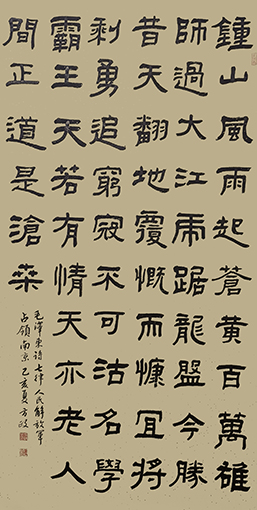 鍾山風雨起蒼黃百萬雄
師過大江虎踞龍盤今勝
昔天翻地覆慨而慷宜將
剩勇追窮寇不可沽名學
霸王天若有情天亦老人
間正道是滄桑
毛澤東詩七律人民解放軍
占領南京己亥夏方政